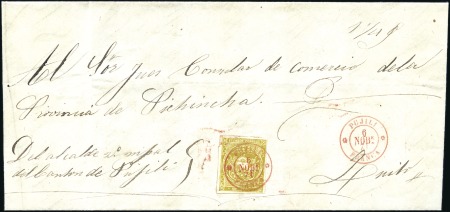 Al Sor Juez Consular de comercio dela
Provincia de Pichincha.
PUJILI
6
NOBE
FRANCA
Del alcalde 2º mpal
del Canton de Pujilí
Quito